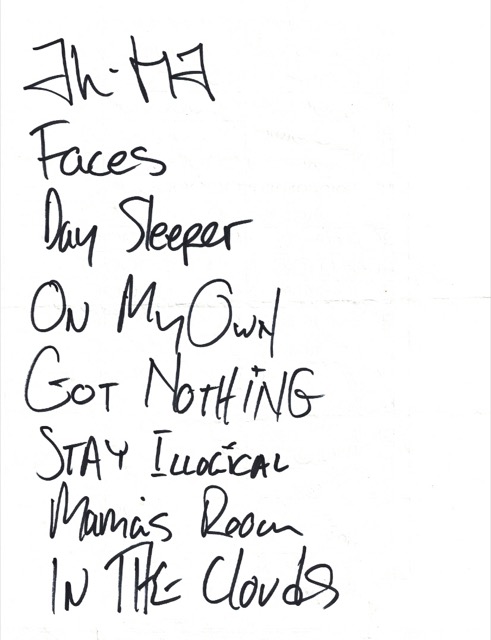 Faces
Day Sleeper
On My Own
Got Nothing
Stay Illogical
Mama's Room
In The Clouds